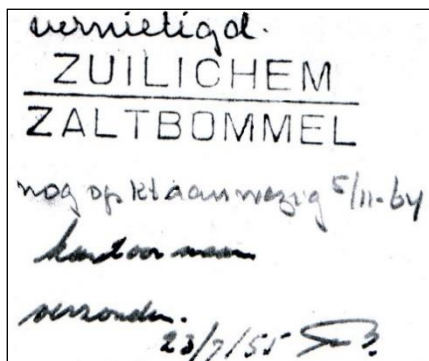 vernietigd.
ZUILICHEM
ZALTBOMMEL
nog op kt aanwezig 5/11-64
kantoor naam
verzonden.
23/7/55